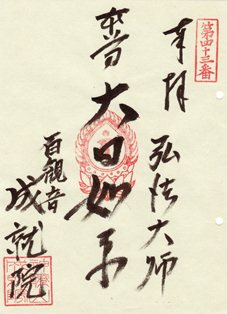 第四十三番
奉拝
弘法大師
本尊
大日如来
百観音
成就院